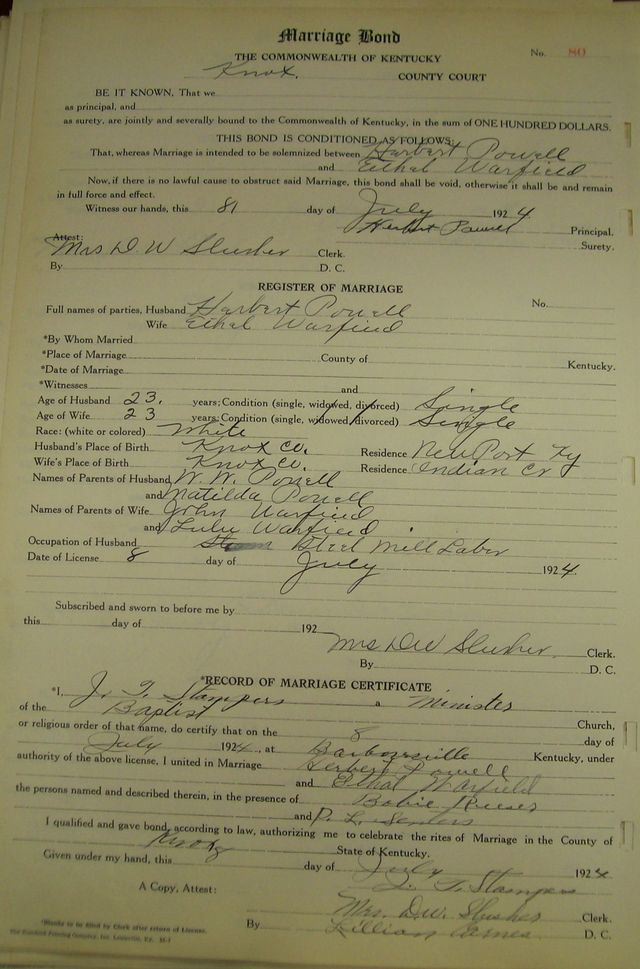 Marriage Bond
No. 80
THE COMMONWEALTH OF KENTUCKY
Knox. COUNTY COURT
BE IT KNOWN, That we
as principal, and
as surety, are jointly and severally bound to the Commonwealth of Kentucky, in the sum of ONE HUNDRED DOLLARS.
THIS BOND IS CONDITIONED AS FOLLOWS:
That, whereas Marriage is intended to be solemnized between Herbert Powell
and Ethel Warfield
Now, if there is no lawful cause to obstruct said Marriage, this bond shall be void, otherwise it shall be and remain
in full force and effect.
Witness our hands, this 8 day of July 1924
Herbert Powell Principal.
Attest: Surety.
Mrs D. W Slusher Clerk.
By D. C.
REGISTER OF MARRIAGE
Full names of parties, Husband Herbert Powell No.
Wife Ethel Warfield
*By Whom Married
*Place of Marriage County of Kentucky.
*Date of Marriage
*Witnesses and
Age of Husband 23. years; Condition (single, widowed, divorced) Single
Age of Wife 23 years; Condition (single, widowed, divorced) Single
Race: (white or colored) White
Husband's Place of Birth Knox Co. Residence New Port Ky
Wife's Place of Birth Knox Co. Residence Indian Cr
Names of Parents of Husband W. W. Powell
and Matilda Powell
Names of Parents of Wife John Warfield
and Lulu Warfield
Occupation of Husband Steel Mill Labor
Date of License 8 day of July 1924.
Subscribed and sworn to before me by
this day of 192
Mrs DW Slusher Clerk.
By D. C.
*RECORD OF MARRIAGE CERTIFICATE
*I, J. T. Stampers a Minister
of the Baptist Church,
or religious order of that name, do certify that on the 8 day of
July 1924, at Barbourville Kentucky, under
authority of the above license, I united in Marriage Herbert Powell
and Ethel Warfield
the persons named and described therein, in the presence of
and P. L.
I qualified and gave bond, according to law, authorizing me to celebrate the rites of Marriage in the County of
Knox State of Kentucky.
Given under my hand, this day of July 1924
J. T. Stampers
A Copy, Attest:
Mrs. D.W. Slusher Clerk.
By Lillian D. C.
*Blanks to be filled by Clerk after return of License.
The Standard Printing Company, Inc. Louisville, Ky.